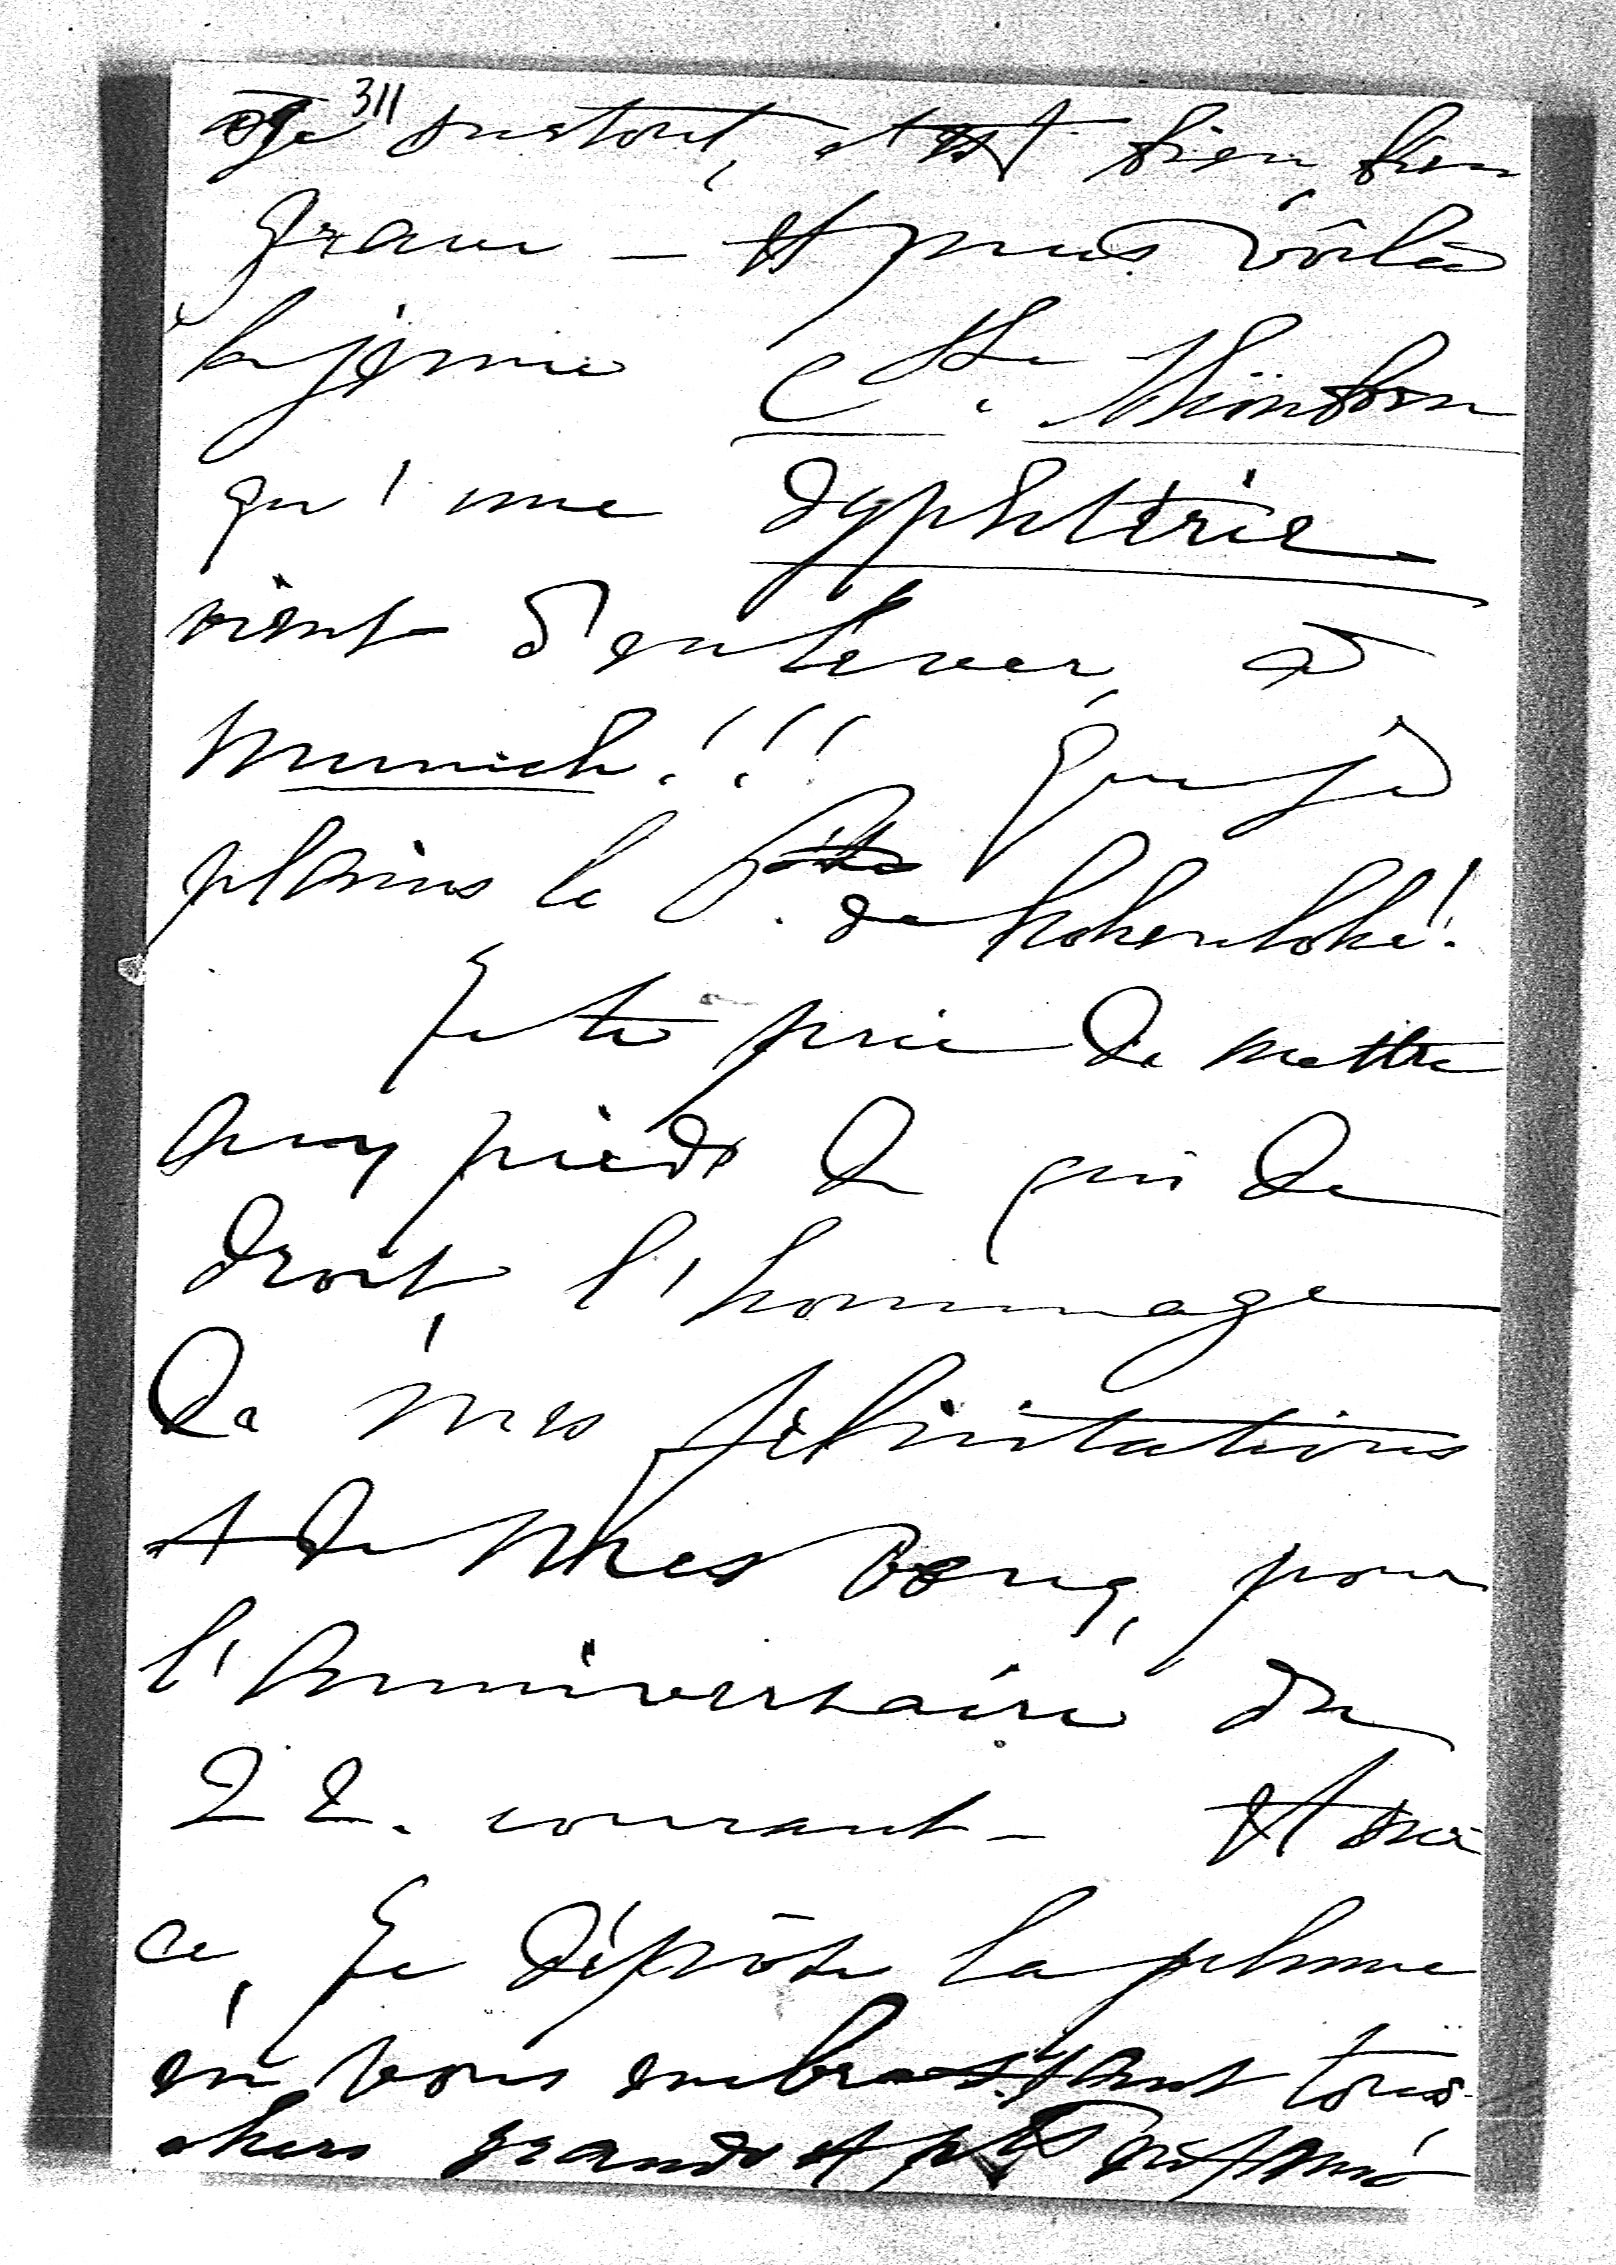 311
âge surtout, c'est bien bien
grave — et puis voilà
la jeune Ctsse Schönborn
qu'une dyphtérie
vient d'enlever, à
Munich!!! Que je
plains le de Hohenlohe!
Je te prie de mettre
aux pieds de qui de
droit, l'hommage
de mes félicitations
et de mes voeux, pour
l'anniversaire du
22. courant — Et sur
ce, je dépose la plume
en vous embrassant tous,
chers grands et pts